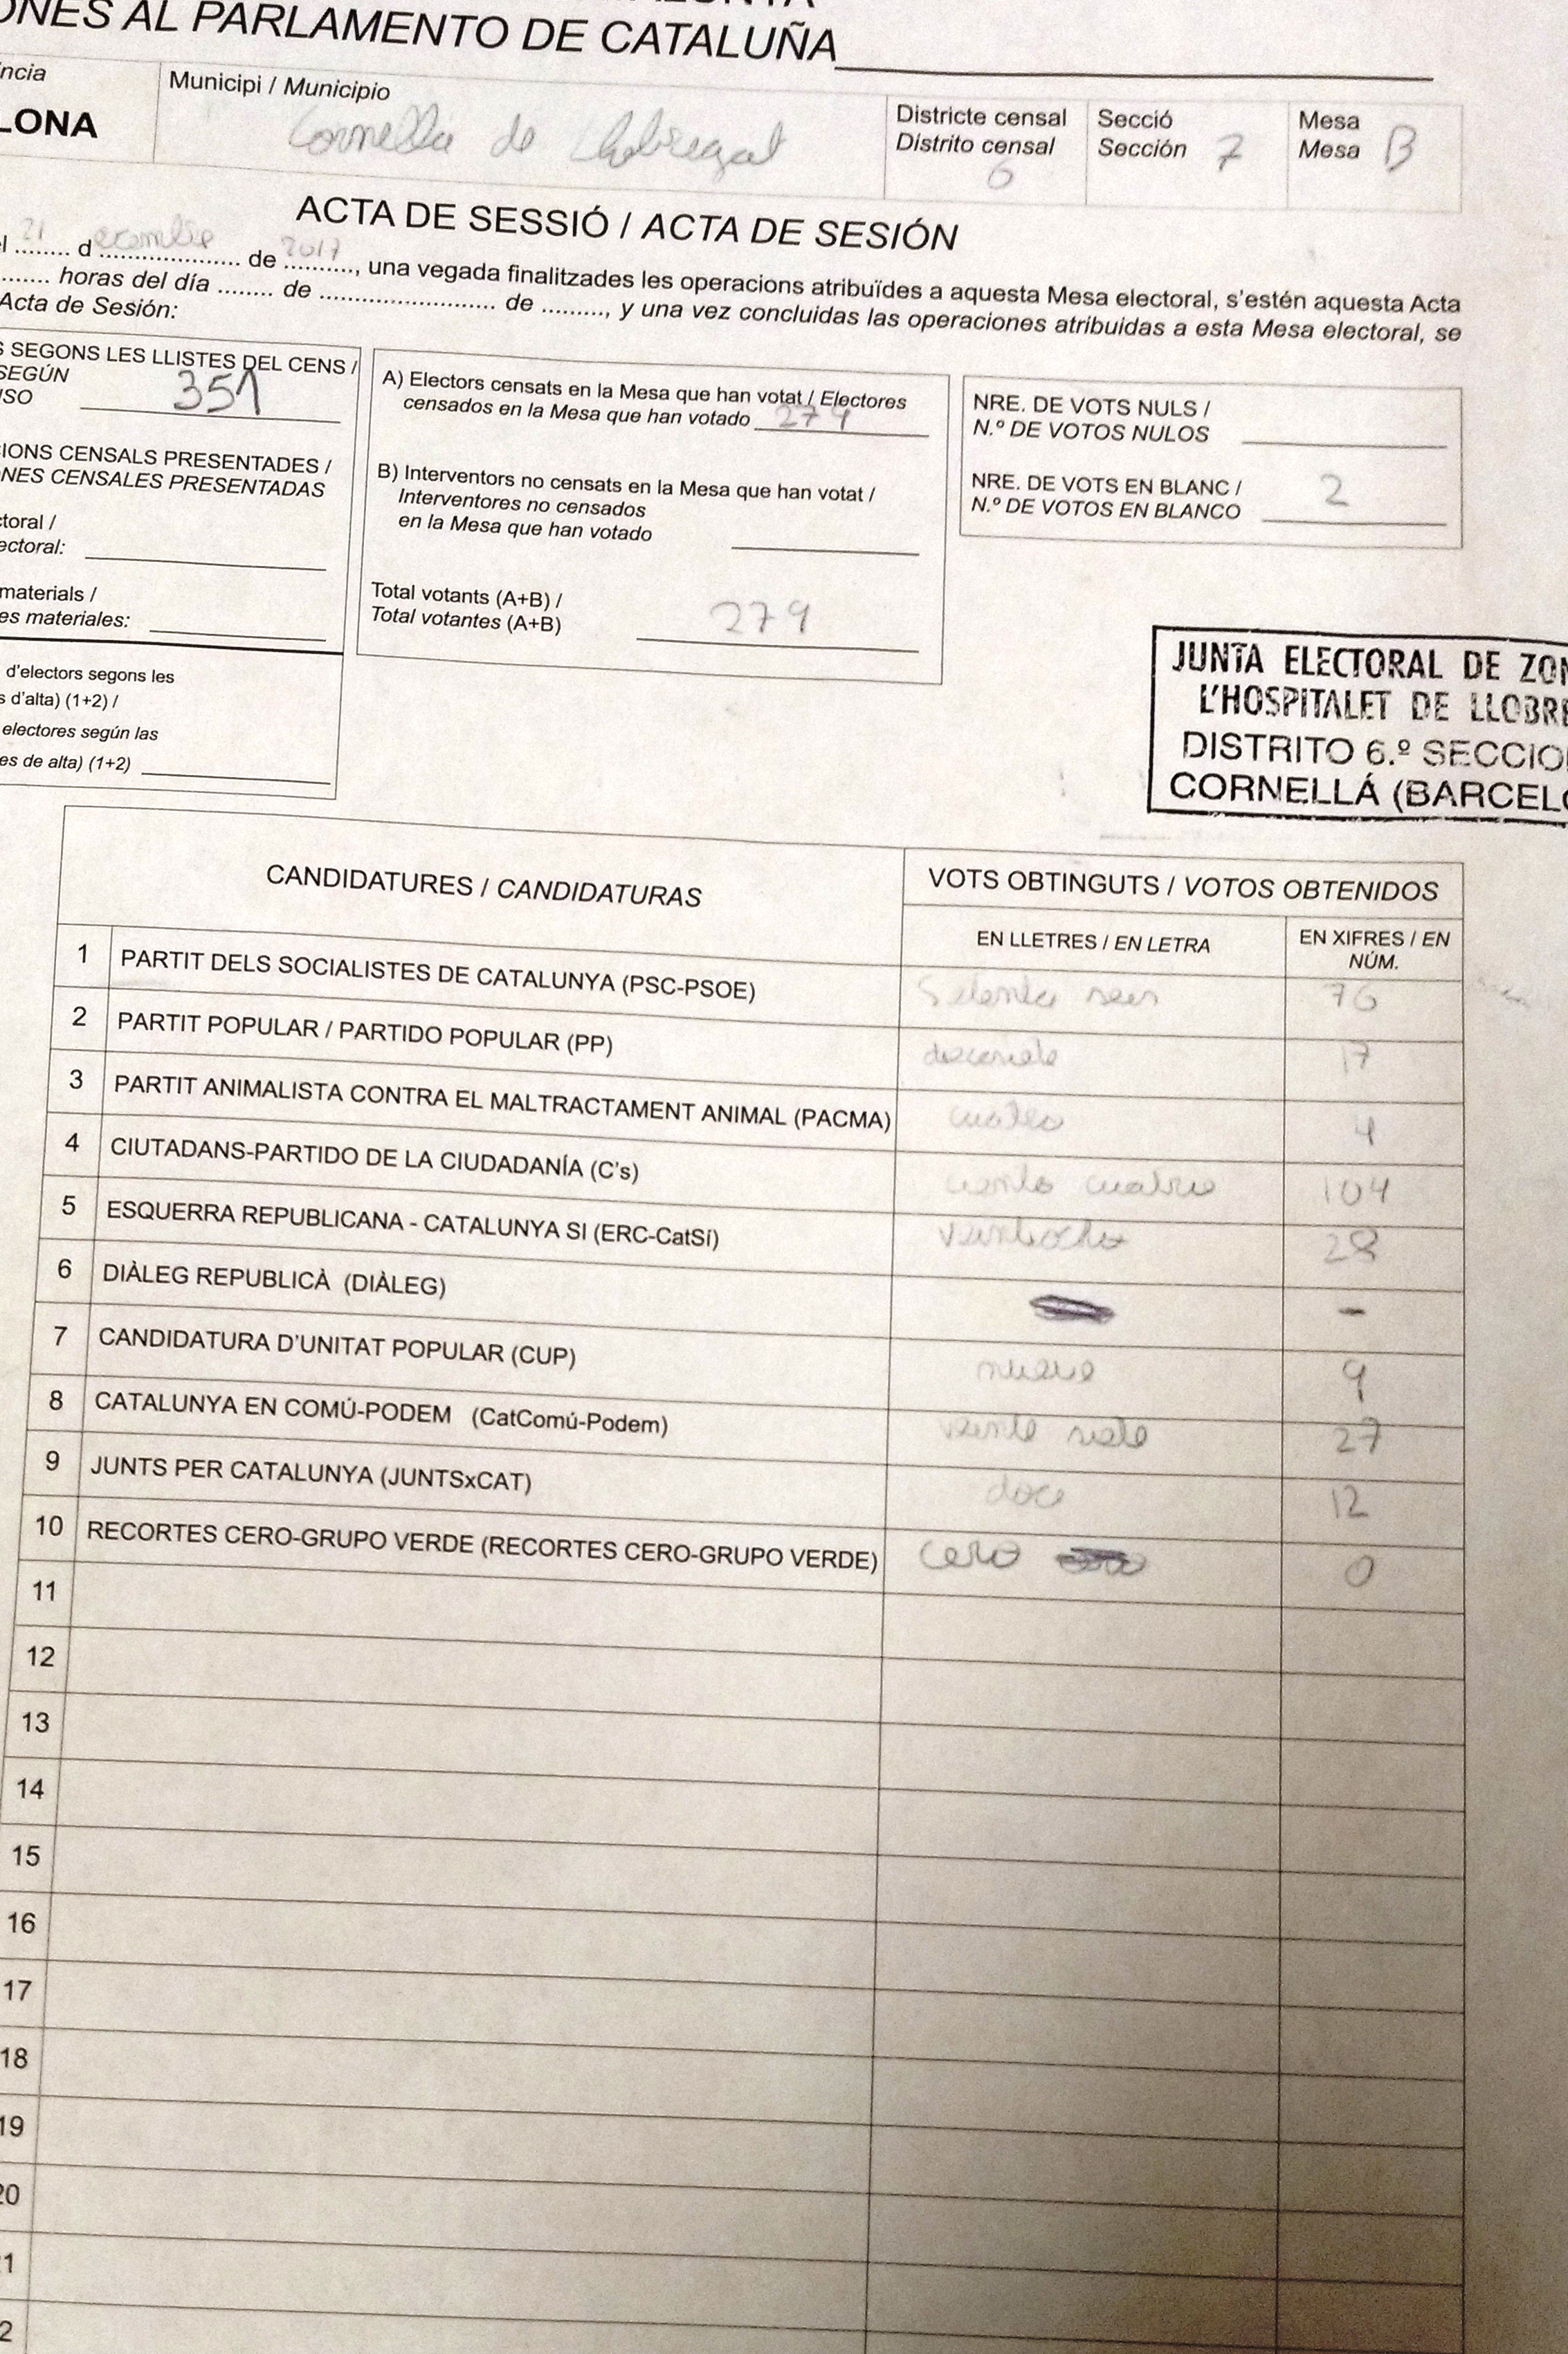 ONES AL PARLAMENTO DE CATALUÑA
Municipi / Municipio
Cornella de Llobregat
LONA
Districte censal
Distrito censal
6
Secció
Sección 7
Mesa
Mesa B
ACTA DE SESSIÓ / ACTA DE SESIÓN
el 21 d ecembre de 2017, una vegada finalitzades les operacions atribuïdes a aquesta Mesa electoral, s'estén aquesta Acta
........ horas del día ........ de ........................ de ........., y una vez concluidas las operaciones atribuidas a esta Mesa electoral, se
Acta de Sesión:
S SEGONS LES LLISTES DEL CENS /
SEGÚN
NSO 351
CIONS CENSALS PRESENTADES /
ONES CENSALES PRESENTADAS
ctoral /
ectoral:
materials /
es materiales:
d'electors segons les
s d'alta) (1+2) /
electores según las
es de alta) (1+2)
A) Electors censats en la Mesa que han votat / Electores
censados en la Mesa que han votado 279
B) Interventors no censats en la Mesa que han votat /
Interventores no censados
en la Mesa que han votado
Total votants (A+B) /
Total votantes (A+B) 279
NRE. DE VOTS NULS /
N.º DE VOTOS NULOS
NRE. DE VOTS EN BLANC /
N.º DE VOTOS EN BLANCO 2
JUNTA ELECTORAL DE ZON
L'HOSPITALET DE LLOBRE
DISTRITO 6.º SECCIO
CORNELLÁ (BARCELO
CANDIDATURES / CANDIDATURAS
VOTS OBTINGUTS / VOTOS OBTENIDOS
EN LLETRES / EN LETRA
EN XIFRES / EN NÚM.
1 PARTIT DELS SOCIALISTES DE CATALUNYA (PSC-PSOE) Setenta seis 76
2 PARTIT POPULAR / PARTIDO POPULAR (PP) diecisiete 17
3 PARTIT ANIMALISTA CONTRA EL MALTRACTAMENT ANIMAL (PACMA) cuatro 4
4 CIUTADANS-PARTIDO DE LA CIUDADANÍA (C's) ciento cuatro 104
5 ESQUERRA REPUBLICANA - CATALUNYA SI (ERC-CatSí) veintiocho 28
6 DIÀLEG REPUBLICÀ (DIÀLEG) -
7 CANDIDATURA D'UNITAT POPULAR (CUP) nueve 9
8 CATALUNYA EN COMÚ-PODEM (CatComú-Podem) veinte siete 27
9 JUNTS PER CATALUNYA (JUNTSxCAT) doce 12
10 RECORTES CERO-GRUPO VERDE (RECORTES CERO-GRUPO VERDE) cero 0
11
12
13
14
15
16
17
18
19
20
1
2